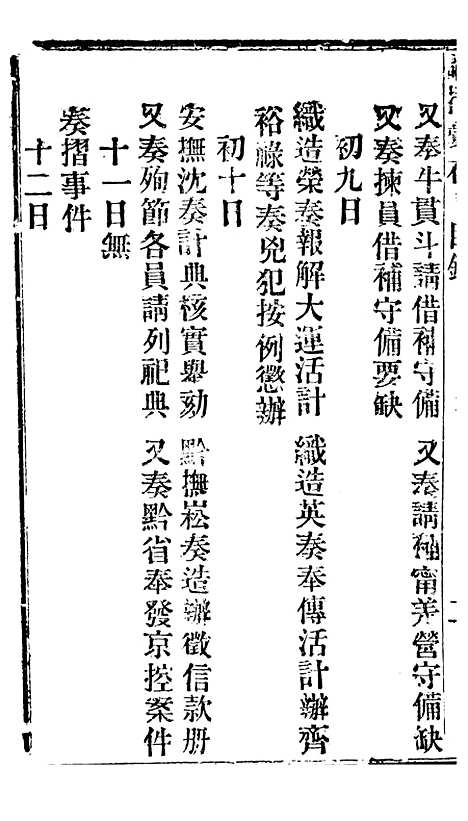 又奏牛貫斗請借補守備　又奏請補甯善營守備缺
又奏揀員借補守備要缺
初九日
織造榮奏報解大運活計　織造英奏奉傳活計辦齊
裕祿等奏兇犯按例懲辦
初十日
安撫沈奏計典核實舉劾　黔撫崧奏造辦徵信款册
又奏殉節各員請列祀典　又奏黔省奉發京控案件
十一日無
奏摺事件
十二日